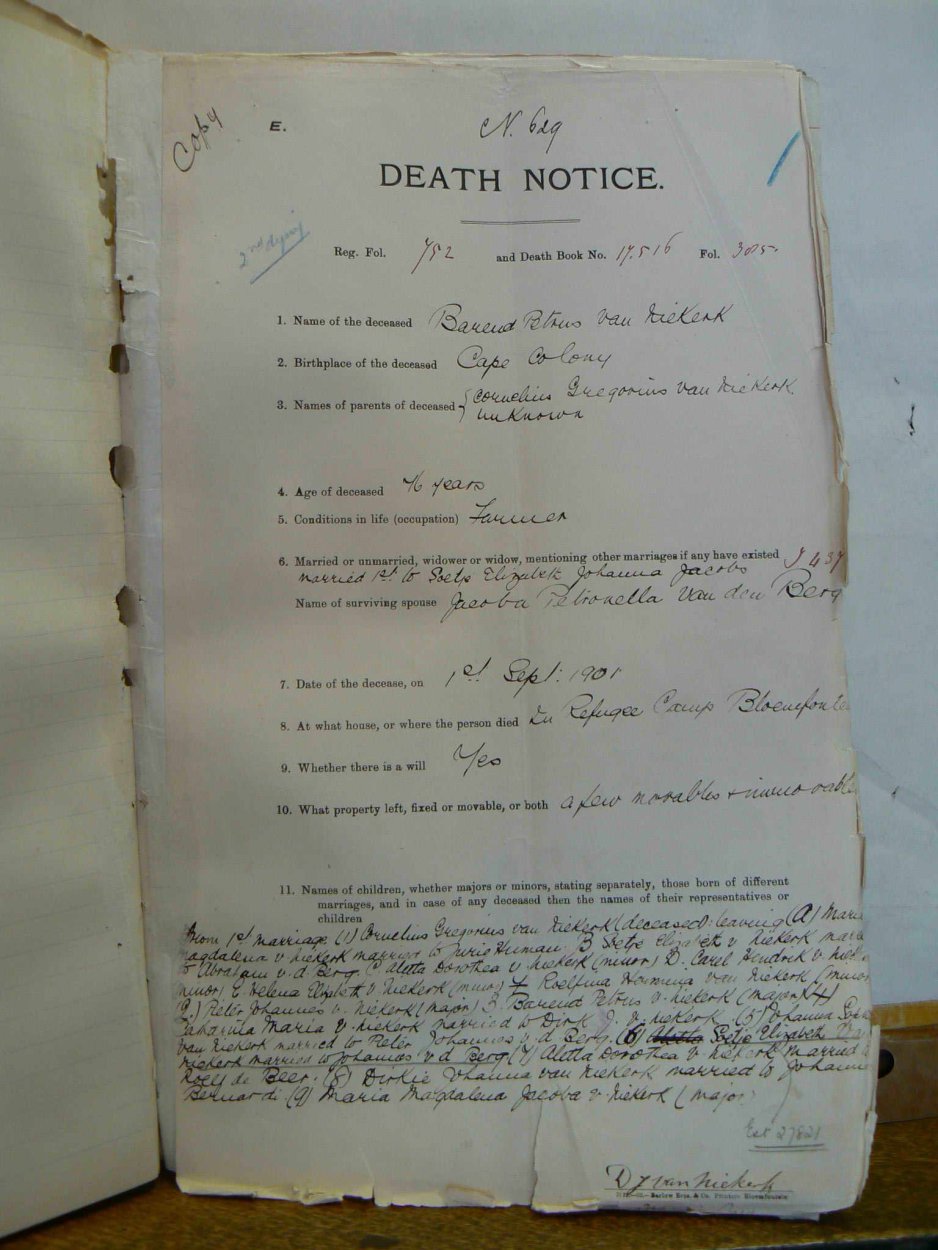 Copy
E.
N. 629
DEATH NOTICE.
2nd
Reg. Fol. 752 and Death Book No. 17.516 Fol. 305.
1. Name of the deceased Barend Petrus van Niekerk
2. Birthplace of the deceased Cape Colony
3. Names of parents of deceased { Cornelius Gregorius van Niekerk.
unknown
4. Age of deceased 76 years
5. Conditions in life (occupation) Farmer
6. Married or unmarried, widower or widow, mentioning other marriages if any have existed
married 1st to Soetje Elizabeth Johanna Jacobs
Name of surviving spouse Jacoba Petronella van den Berg
7. Date of the decease, on 1st Sept: 1901
8. At what house, or where the person died In Refugee Camp Bloemfonte
9. Whether there is a will Yes
10. What property left, fixed or movable, or both a few movables + immovable
11. Names of children, whether majors or minors, stating separately, those born of different
marriages, and in case of any deceased then the names of their representatives or
children
From 1st marriage (1) Cornelius Gregorius van Niekerk (deceased) leaving (A) Maria
Magdalena v. Niekerk married to Jurie Human. B Soetje Elizabeth v Niekerk married
to Abraham v. d. Berg C Aletta Dorothea v. Niekerk (minor) D. Carel Hendrik v. Niek
minor) E. Helena Elizabeth v Niekerk (minor) F Roelfina Hermina van Niekerk (minor
(2.) Pieter Johannes v. Niekerk (major) 3. Barend Petrus v. Niekerk (major) (4)
Catharina Maria v. Niekerk married to Dirk J. v. Niekerk. (5) Johanna Sop
van Niekerk married to Pieter Johannes v. d. Berg. (6) Soetje Elizabeth Van
Niekerk married to Johannes v. d. Berg (7) Aletta Dorothea v Niekerk married
Roelf de Beer. (8) Dirkie Johanna van Niekerk married to Johanne
Bernardi (9) Maria Magdalena Jacoba v. Niekerk (major)
Est 27821
D J van Niekerk
Barlow Bros. & Co. Printers Bloemfontein